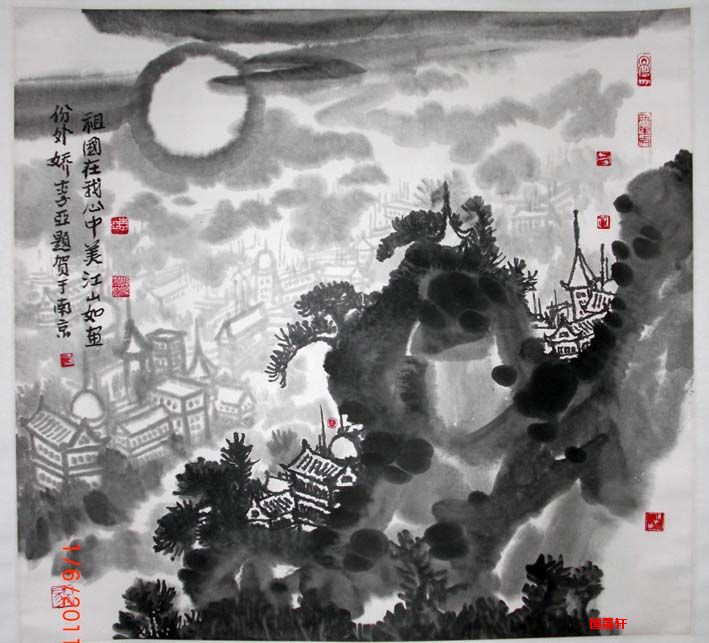 祖國在我心中美江山如画
份外娇李亞题贺于南京
1/6/2011
国墨轩